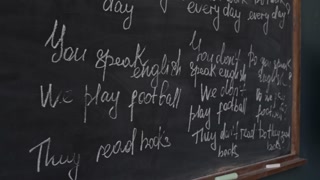 day every day every day?
You speak english You don't speak english Do you speak
We play football We don't play football
They read books They don't read books Do they read books?